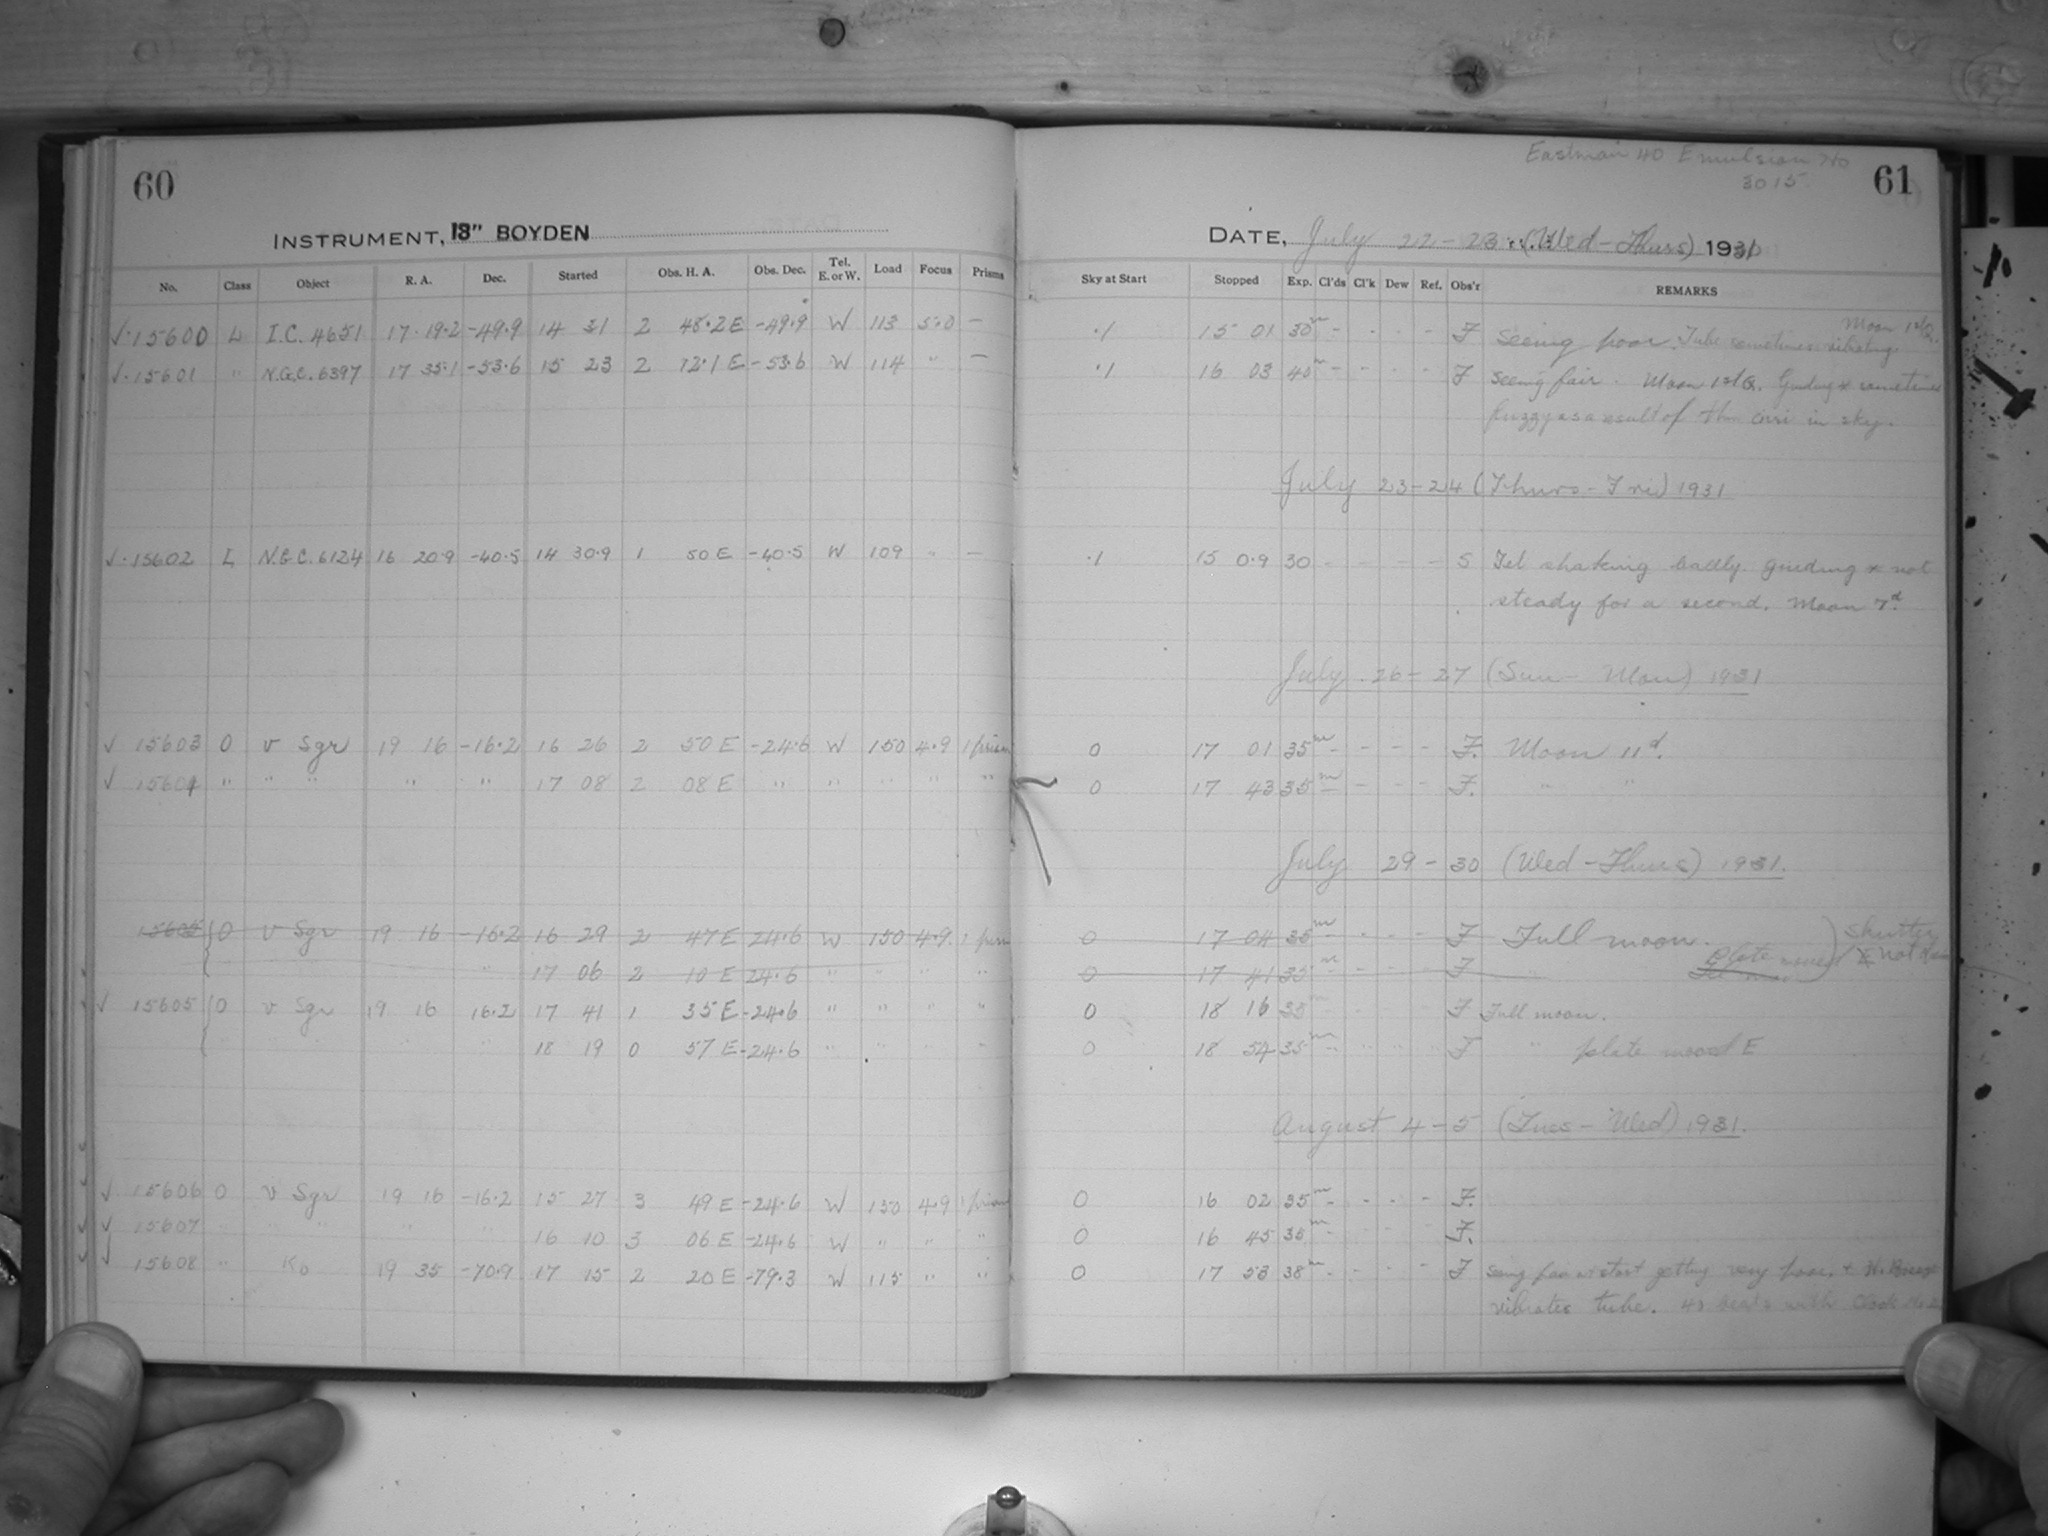 60
INSTRUMENT, 13" BOYDEN
No. Class Object R. A. Dec. Started Obs. H. A. Obs. Dec. Tel. E. or W. Load Focus Prisms
√ · 15600 L I.C. 4651 17 19.2 -49.9 14 31 2 48.2 E -49.9 W 113 5.0 —
√ · 15601 " N.G.C. 6397 17 35.1 -53.6 15 23 2 12.1 E -53.6 W 114 " —
√ · 15602 L N.G.C. 6124 16 20.9 -40.5 14 30.9 1 50 E -40.5 W 109 " —
√ 15603 O v Sgr 19 16 -16.2 16 26 2 50 E -24.6 W 150 4.9 1 prism
√ 15604 " " " " " 17 08 2 08 E " " " " "
15605 O v Sgr 19 16 -16.2 16 29 2 47 E 24.6 W 150 4.9 1 prism
" 17 06 2 10 E 24.6 " " " "
√ 15605 O v Sgr 19 16 16.2 17 41 1 35 E -24.6 " " " "
" " 18 19 0 57 E -24.6 " " " "
√ 15606 O v Sgr 19 16 -16.2 15 27 3 49 E -24.6 W 150 4.9 1 prism
√ √ 15607 " " " " " 16 10 3 06 E -24.6 W " " "
√ √ 15608 " K6 19 35 -70.9 17 15 2 20 E -79.3 W 115 " "
Eastman 40 Emulsion No
3015
61
DATE, July 22 - 23 (Wed - Thurs) 1931
Sky at Start Stopped Exp. Cl'ds Cl'k Dew Ref. Obs'r REMARKS
.1 15 01 30m - - - - F Seeing poor. Tube sometimes vibrating. Moon 1st Q.
.1 16 03 40m - - - - F Seeing fair. Moon 1st Q. Guiding * sometimes
fuzzy as a result of thin cirri in sky.
July 23-24 (Thurs - Fri) 1931
.1 15 0.9 30 - - - - S Tel shaking badly. guiding * not
steady for a second. Moon 7d.
July 26 - 27 (Sun - Mon) 1931
0 17 01 35m - - - - F. Moon 11d.
0 17 43 35m - - - - F. " "
July 29 - 30 (Wed - Thurs) 1931.
0 17 04 35m - - - - F Full moon.
0 17 41 35m - - - - F " Plate moved
0 18 16 35 F Full moon.
0 18 54 35m - - " - F " plate moved E
August 4 - 5 (Tues - Wed) 1931.
0 16 02 35m - - - - F.
0 16 45 35m - F.
0 17 53 38m - - - - F Seeing fair at start getting very poor, +
vibrates tube. with Clock